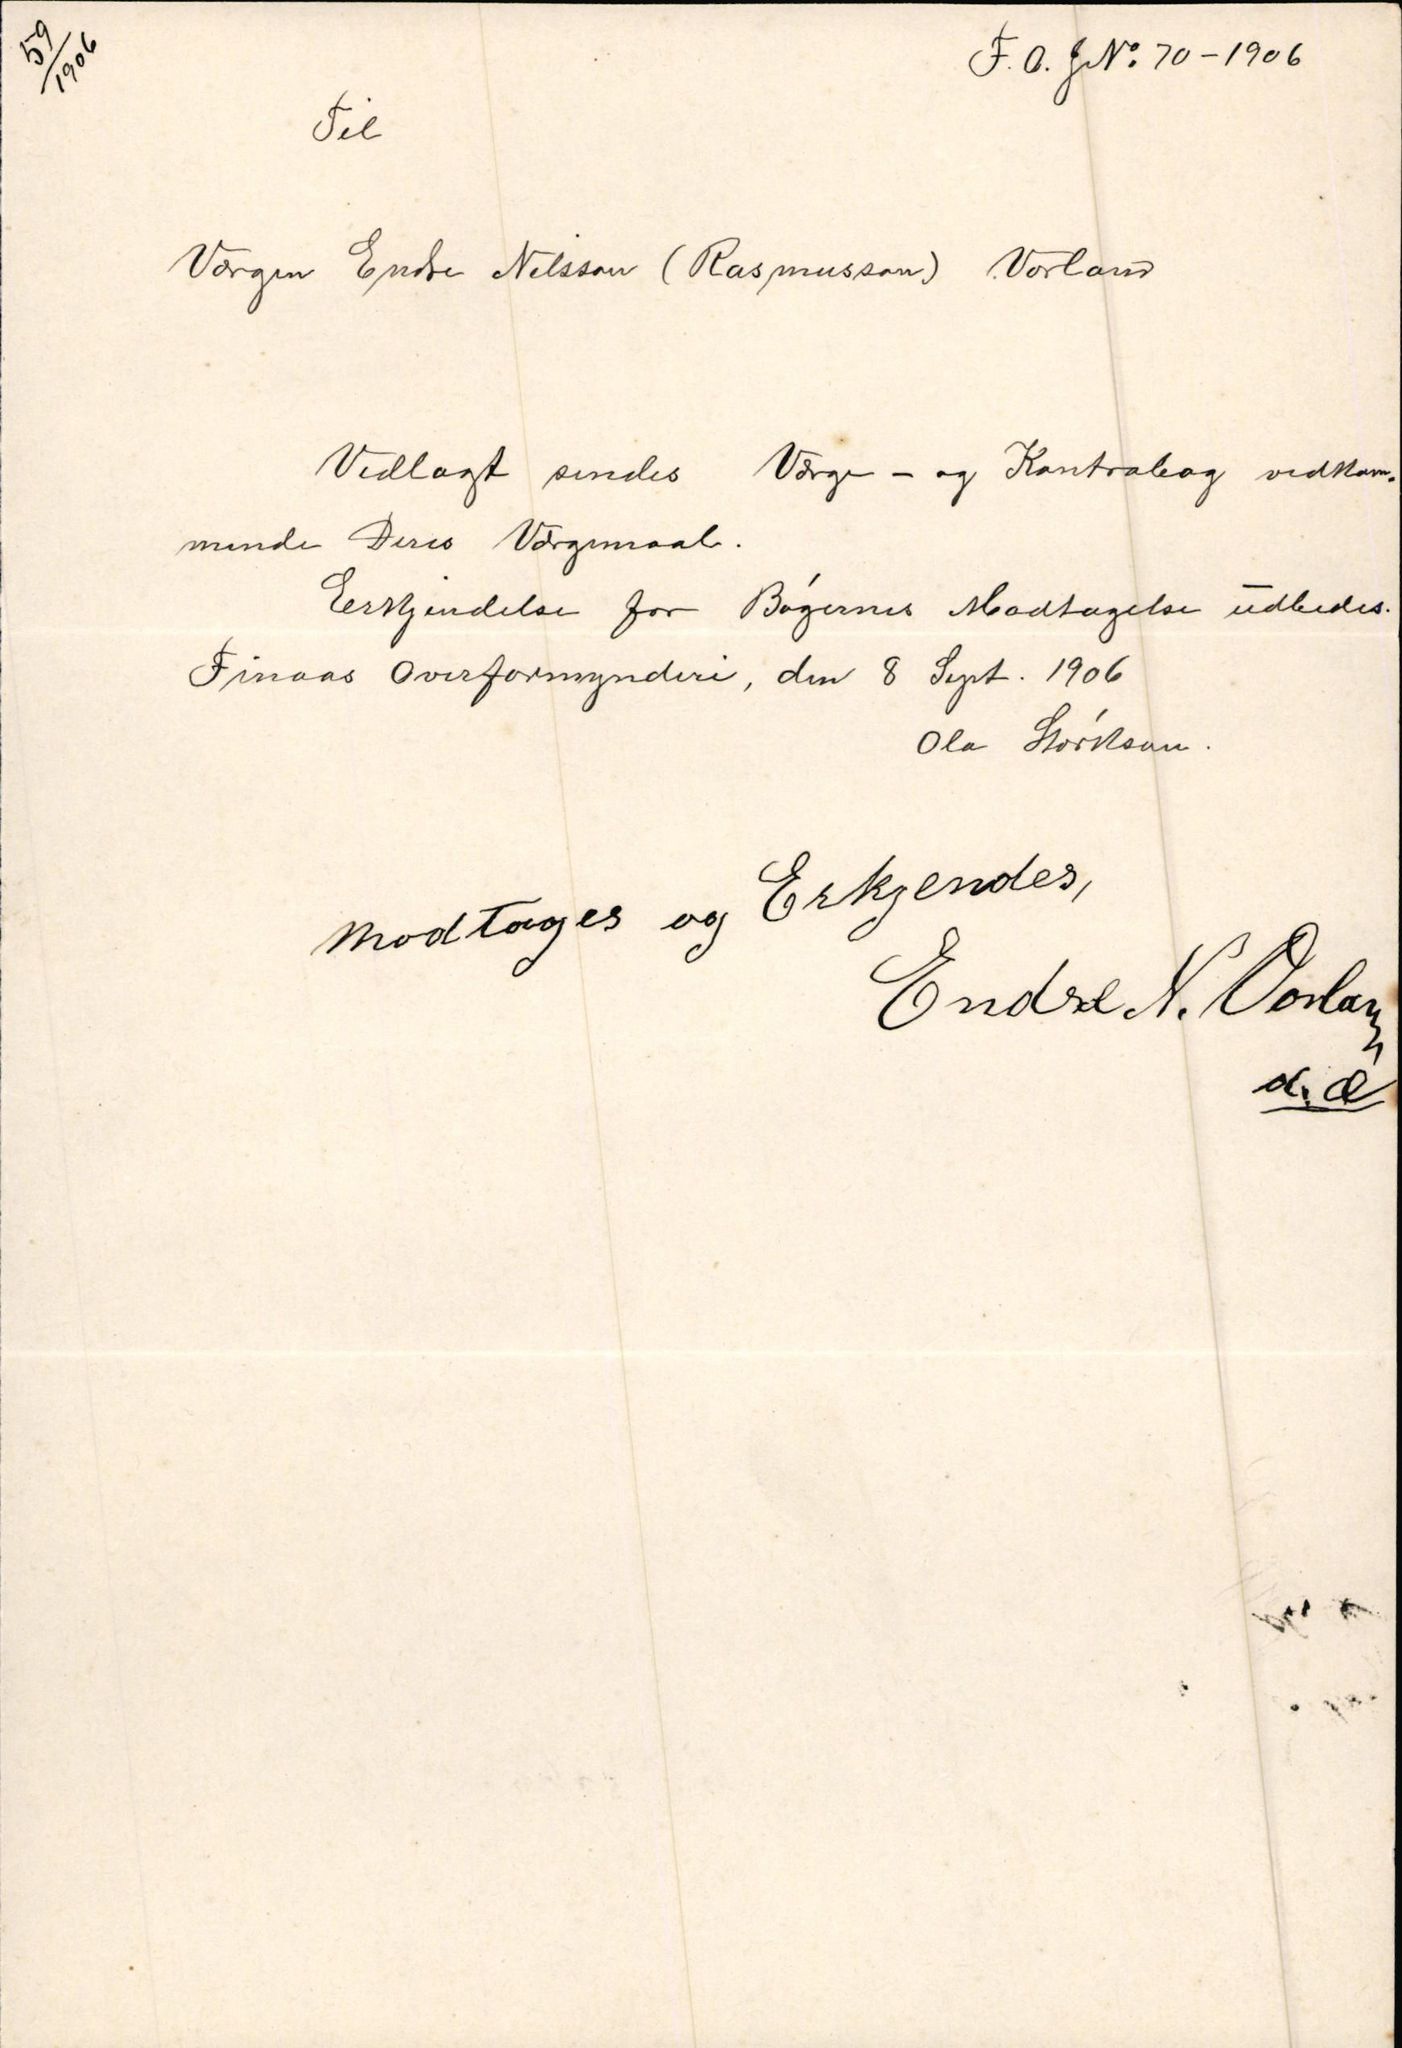 59/1906
F. O. J No. 70 - 1906
Til
Værgen Endre Nelsson (Rasmusson) Vorland
Vedlagt sendes Værge- og Kontrabog vedkom-
mende Deres Værgemaal.
Eerkjendelse for Bógernes Modtagelse udbedes.
Finaas Overformynderi, den 8 Sept. 1906
Ola Størkson.
Modtages og Erkjendes,
Endre N. Vorland
d. æ